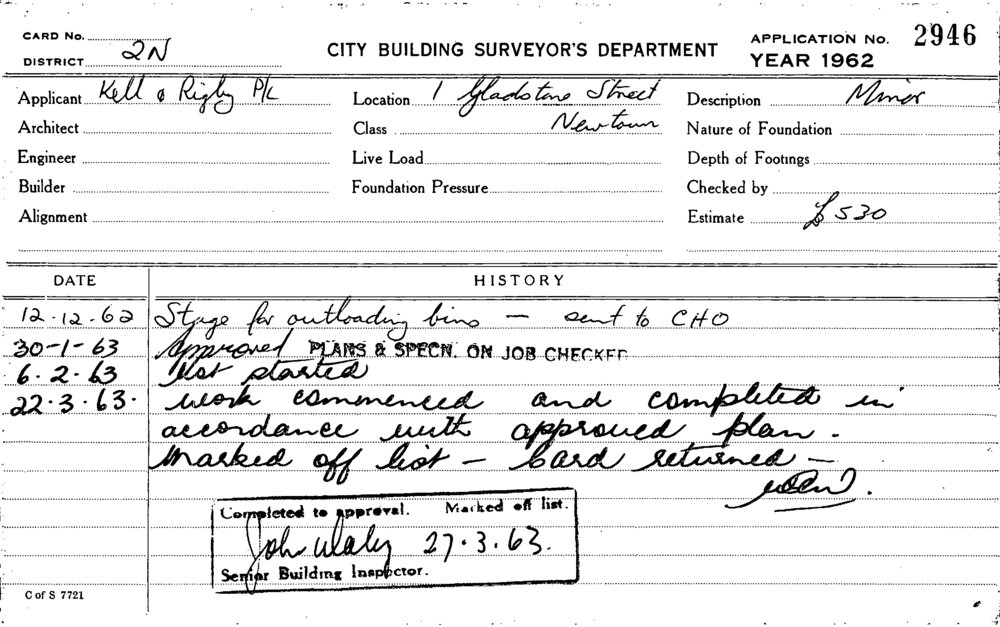 CARD No.
DISTRICT 2N
CITY BUILDING SURVEYOR'S DEPARTMENT
APPLICATION No. 2946
YEAR 1962
Applicant Kell & Rigby P/L
Location 1 Gladstone Street
Description Minor
Architect
Class Newtown
Nature of Foundation
Engineer
Live Load
Depth of Footings
Builder
Foundation Pressure
Checked by
Alignment
Estimate £530
DATE
HISTORY
12.12.62 Stage for outloading bins - sent to CHO
30-1-63 Approved PLANS & SPECN. ON JOB CHECKED
6.2.63 Not started
22.3.63. work commenced and completed in
accordance with approved plan.
Marked off list - Card returned -
Completed to approval. Marked off list.
John 27.3.63.
Senior Building Inspector.
C of S 7721